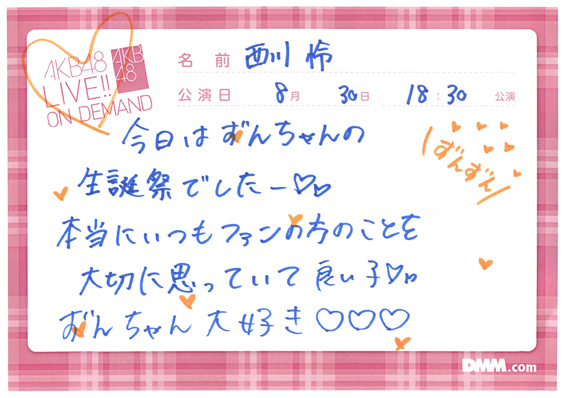 AKB48
LIVE!!
ON DEMAND
AKB
48
名前 西川 怜
公演日 8月 30日 18:30 公演
今日はずんちゃんの
生誕祭でしたー♡♡
\ずんずん/
本当にいつもファンの方のことを
大切に思っていて良い子♡♡
ずんちゃん大好き♡♡♡
DMM.com